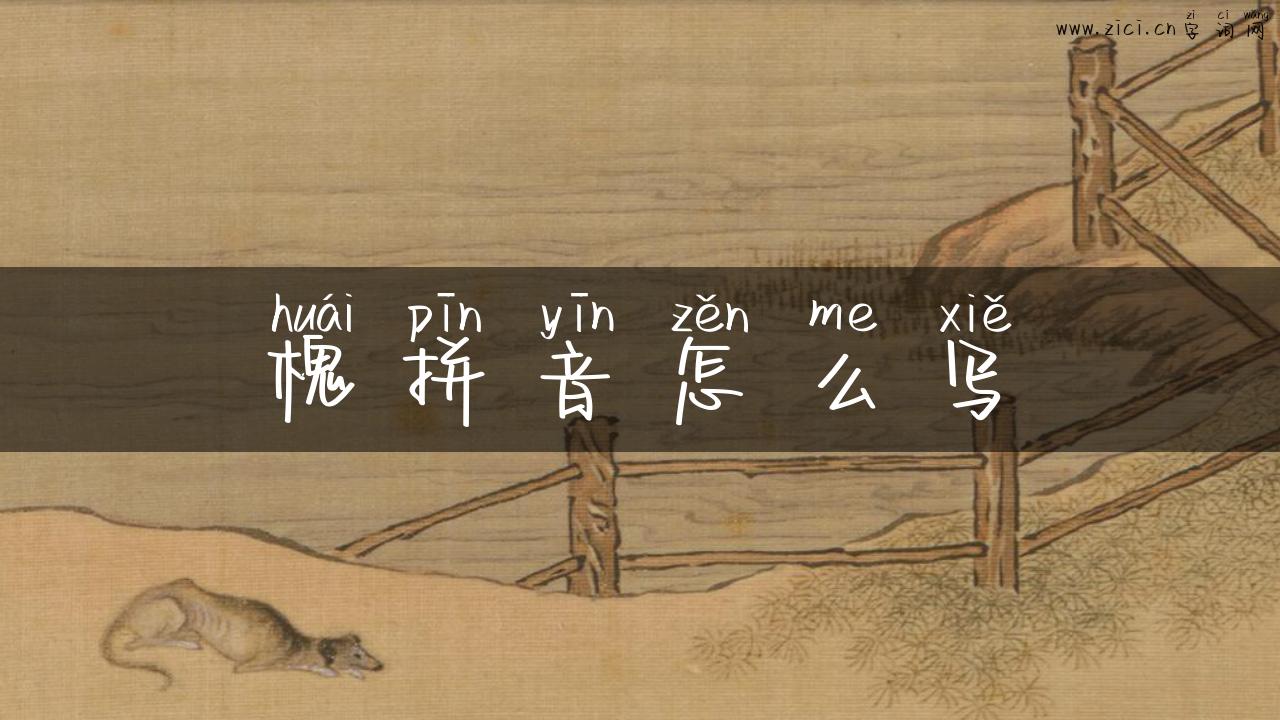 zi ci wang
www.zici.cn 字词网
huái pīn yīn zěn me xiě
槐拼音怎么写